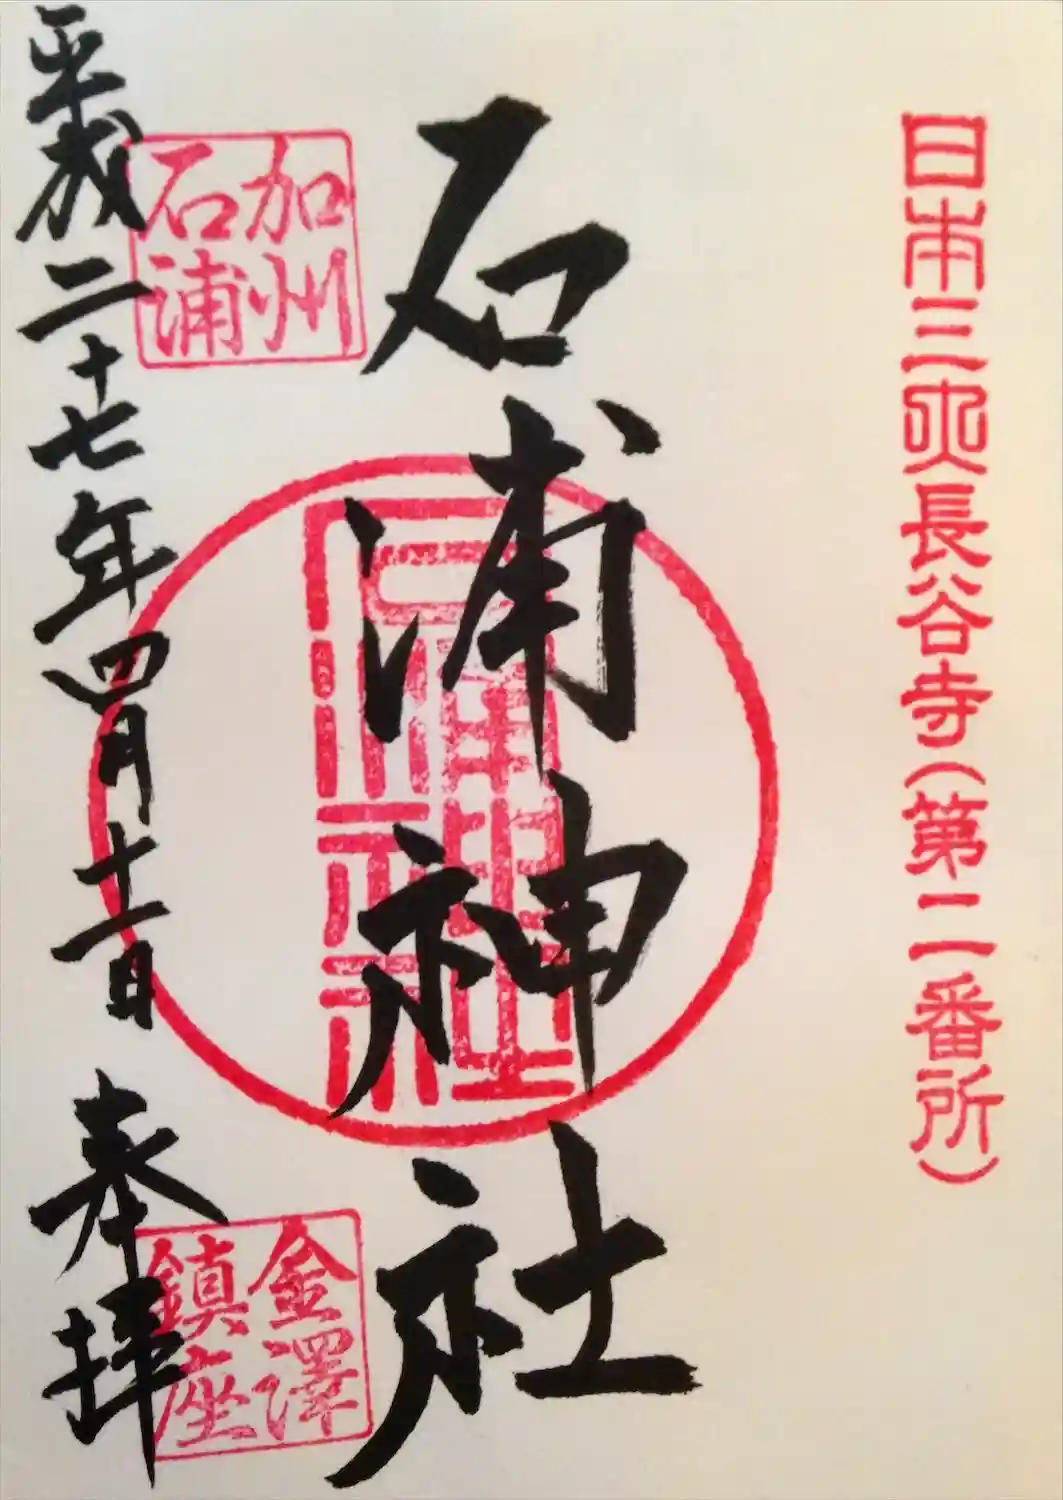 日本三大長谷寺(第二番所)
石浦神社
石浦神社
加州
石浦
金澤
鎮座
平成二十七年四月十一日 奉拝